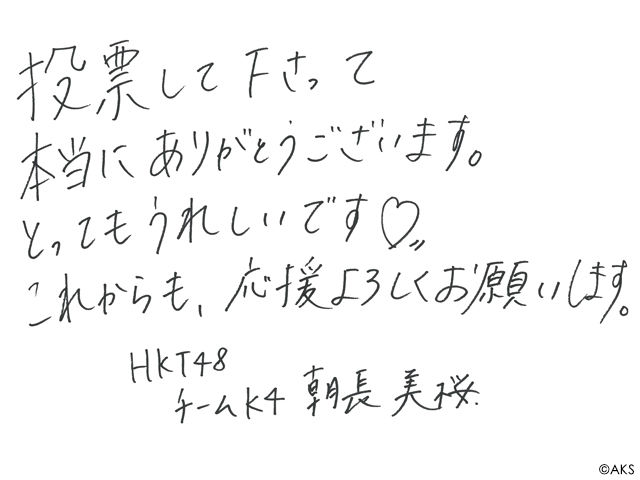 投票して下さって
本当にありがとうございます。
とってもうれしいです♡〃
これからも、応援よろしくお願いします。
HKT48
チームK4 朝長 美桜.
©AKS